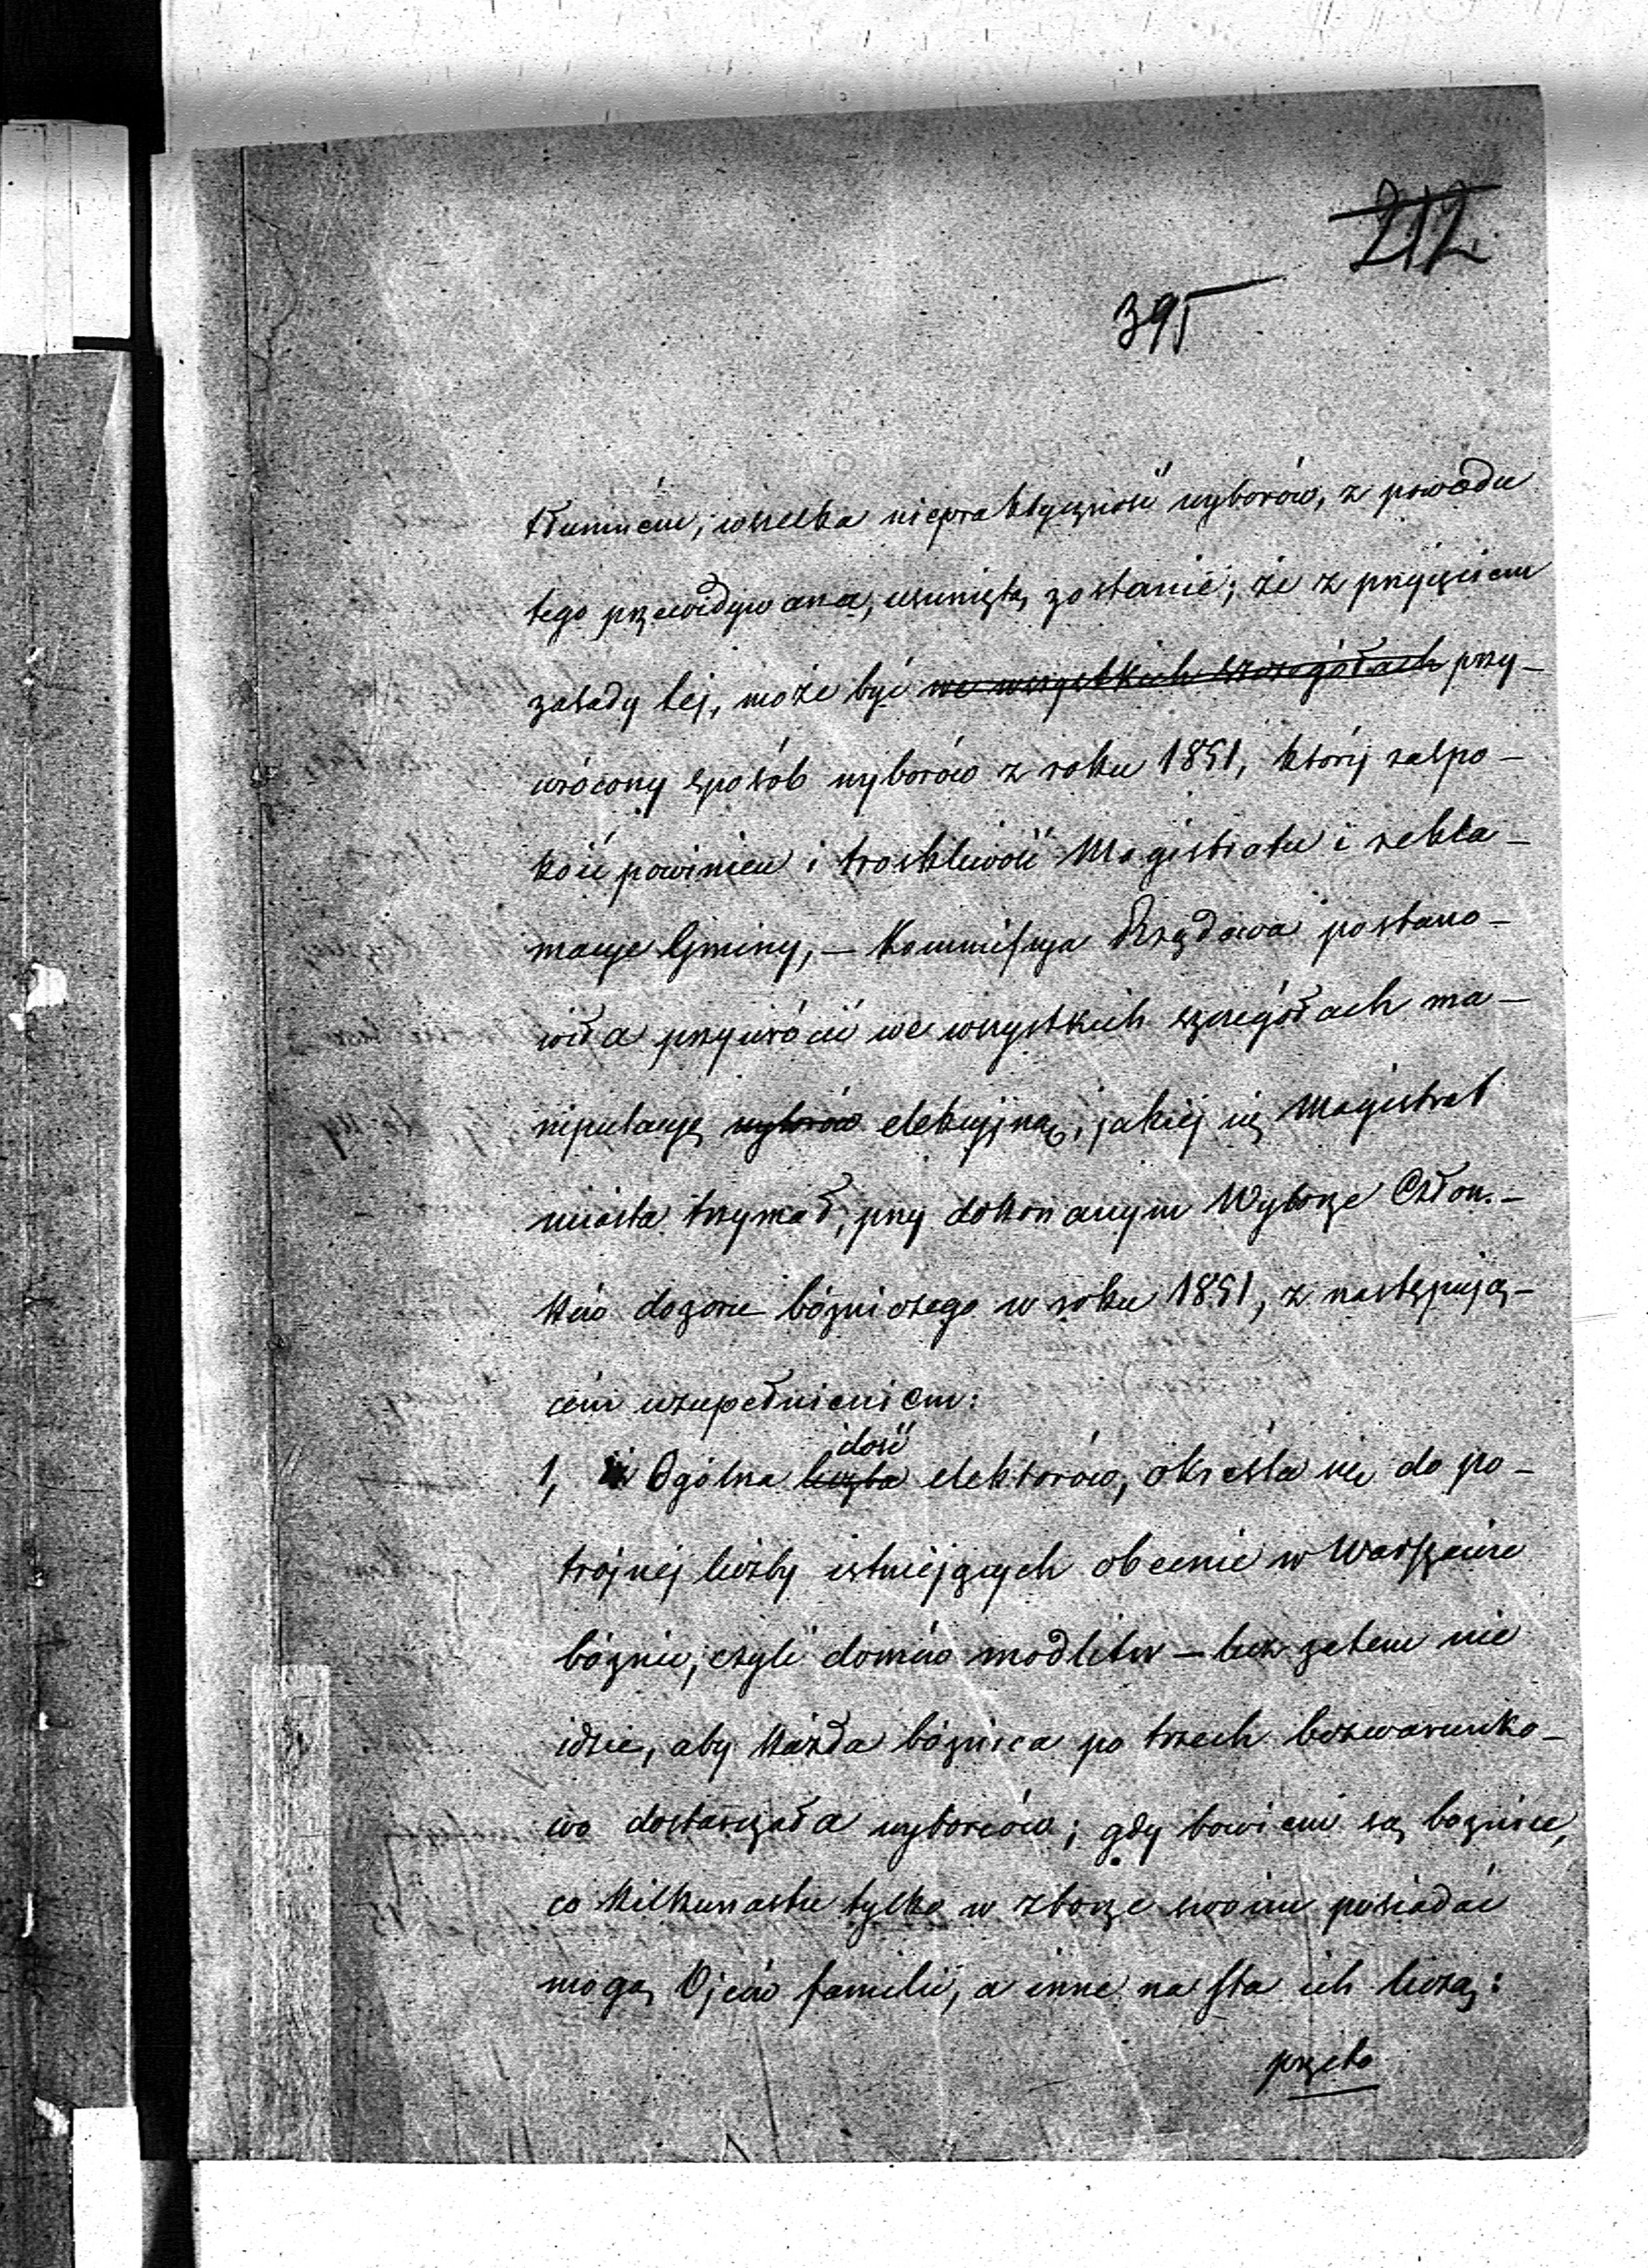 212
395
tłumném, wszelka niepraktyczność wyborów, z powodu
tego przewidywana, usuniętą zostanie; że z przyjęciem
zasady téj, może być we wszystkich szczegółach przy-
wrócony sposób wyborów z roku 1851, który zaspo-
koić powinien i troskliwość Magistratu i rekla-
macje Gminy, — Kommissyja Rządowa postano-
wiła przywrócić we wszystkich szczegółach ma-
nipulacyę wyborów elekcyjną, jakiéj się Magistrat
miasta trzymał, przy dokonanym Wyborze Człon-
ków dozoru bóżniczego w roku 1851, z następują-
cém uzupełnieniem:
ilość
1, Ogólna liczba elektorów, określa się do po-
trójnéj liczby istniejących obecnie w Warszawie
bóżnic, czyli domów modlitw — lecz zatem nie
idzie, aby każda bóżnica po trzech bezwarunko-
wo dostarczała wyborców; gdy bowiem są bożnice,
co kilkunastu tylko w zborze swoim posiadać
mogą Ojców familii, a inne na sta ich liczą:
przeto